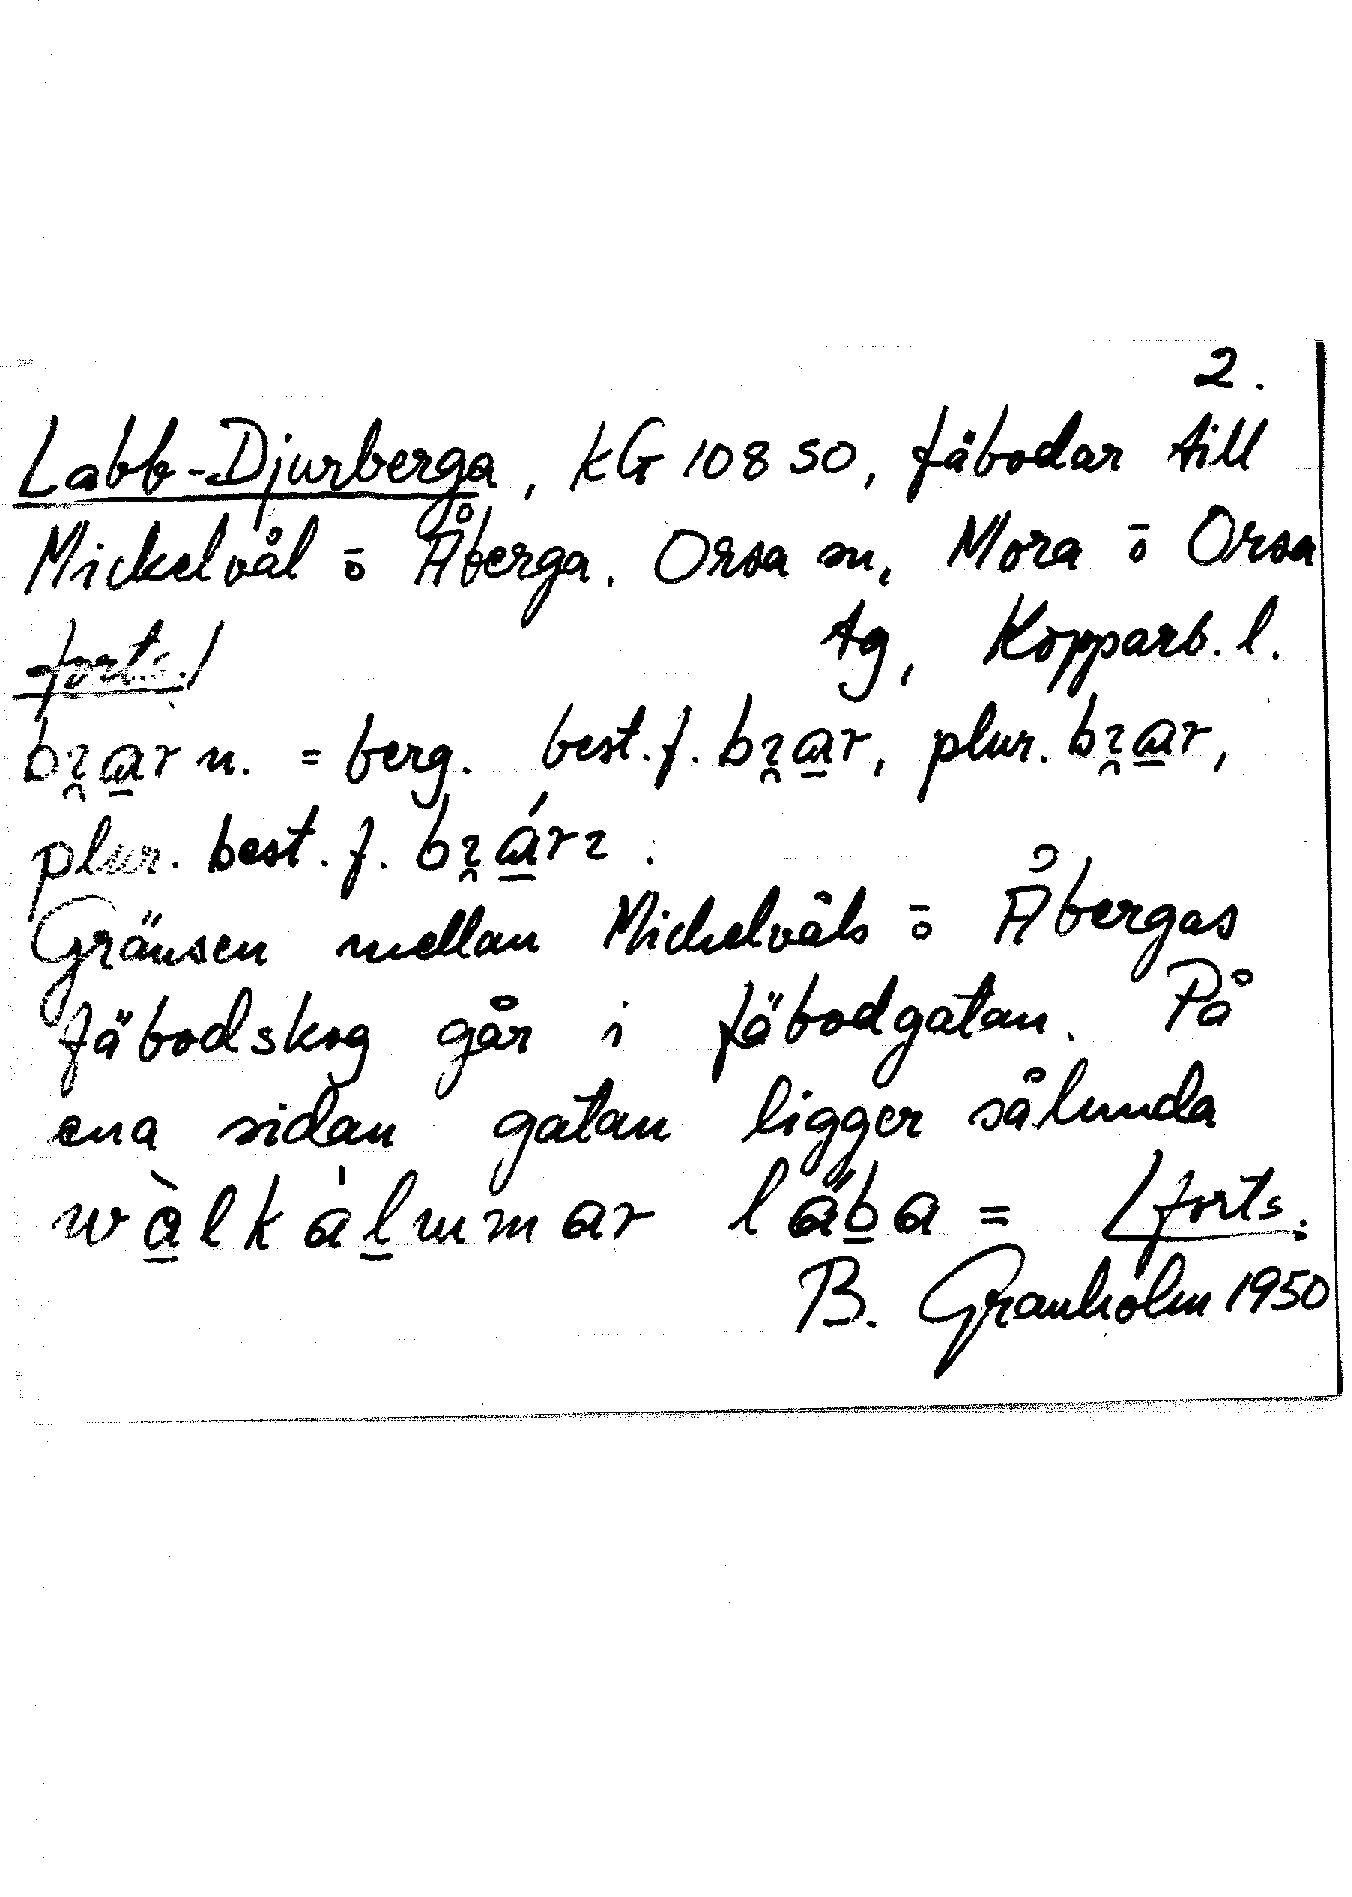 2.
Labb-Djurberga, KG 10850, fäbodar till
Mickelvål ō Åberga. Orsa sn, Mora ō Orsa
forts./ tg, Kopparb. l.
bɿ̯a̲r n. = berg. best. f. bɿ̯a̲r, plur. bɿ̯a̲r,
plur. best. f. bɿ̯á̲rɿ.
Gränsen mellan Mickelvåls ō Åbergas
fäbodskog går i fäbodgatan. På
ena sidan gatan ligger sålunda
wà̲lkál̲ummar läb̲a = /forts.
B. Granholm 1950